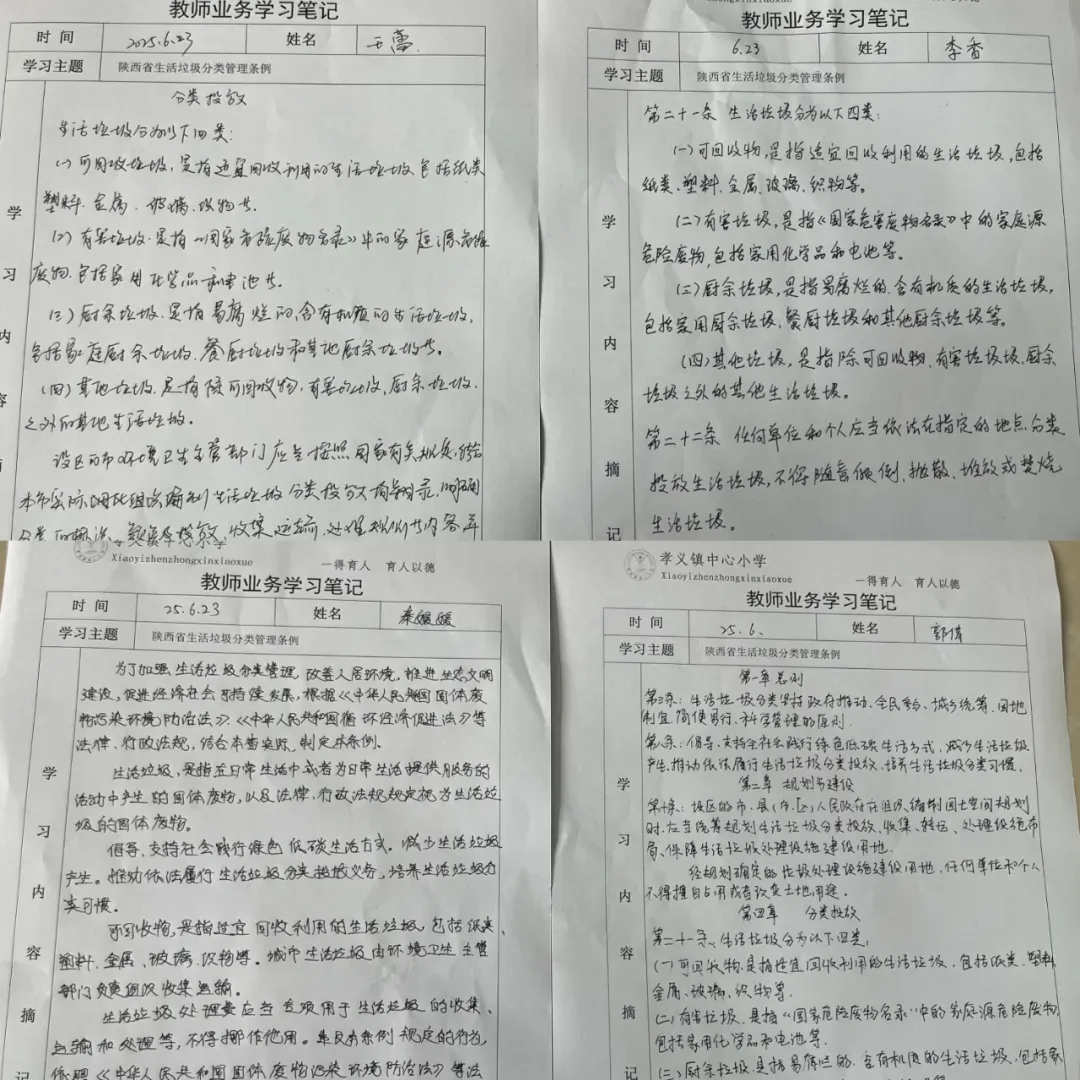 教师业务学习笔记
时 间 2025.6.23 姓名 王蕾
学习主题 陕西省生活垃圾分类管理条例
学习内容摘
分类投放
生活垃圾分为以下四类:
(1) 可回收垃圾,是指适宜回收利用的生活垃圾,包括纸类
塑料、金属、玻璃、织物等.
(2) 有害垃圾.是指《国家危险废物名录》中的家庭源危险
废物.包括家用化学品和电池等.
(三)厨余垃圾.是指易腐烂的,含有机质的生活垃圾,
包括家庭厨余垃圾、餐厨垃圾和其他厨余垃圾等.
(四)其他垃圾.是指除可回收物,有害垃圾,厨余垃圾.
之外的其他生活垃圾.
设区的市环境卫生主管部门应当按照国家有关规定,结合
本市实际 生活垃圾分类投放指导目录,明确
分类 投放、收集、运输、处理规则等内容并
教师业务学习笔记
时 间 6.23 姓名 李香
学习主题 陕西省生活垃圾分类管理条例
学习内容摘记
第二十一条 生活垃圾分为以下四类:
(一)可回收物,是指适宜回收利用的生活垃圾,包括
纸类、塑料、金属、玻璃、织物等。
(二)有害垃圾,是指《国家危害废物名录》中的家庭源
危险废物,包括家用化学品和电池等。
(三)厨余垃圾,是指易腐烂的、含有机质的生活垃圾,
包括家用厨余垃圾、餐厨垃圾和其他厨余垃圾等。
(四)其他垃圾,是指除可回收物、有害垃圾圾、厨余
垃圾之外的其他生活垃圾。
第二十二条 任何单位和个人应当依法在指定的地点分类
投放生活垃圾,不得随意倾倒、抛散、堆放或焚烧
生活垃圾。
Xiaoyizhenzhongxinxiaoxue 一得育人 育人以德
教师业务学习笔记
时 间 25.6.23 姓名 秦媛媛
学习主题 陕西省生活垃圾分类管理条例
学习内容摘记
为了加强生活垃圾分类管理,改善人居环境,推进生态文明
建设,促进经济社会可持续发展,根据《中华人民共和国固体废
物污染环境防治法》、《中华人民共和国循环经济促进法》等
法律、行政法规,结合本省实际,制定本条例.
生活垃圾,是指在日常生活中或者为日常生活提供服务的
活动中产生的固体废物,以及法律、行政法规规定视为生活垃
圾的固体废物.
倡导、支持社会践行绿色低碳生活方式,减少生活垃圾
产生。推动依法履行生活垃圾分类投放义务,培养生活垃圾分
类习惯。
可回收物,是指适宜回收利用的生活垃圾,包括纸类、
塑料、金属、玻璃、织物等。城市生活垃圾由环境卫生主管
部门负责组织收集运输.
生活垃圾处理费应当专项用于生活垃圾的收集、
运输和处理等,不得挪作他用。违反本条例规定的行为,
依照《中华人民共和国固体废物污染环境防治法》等法
孝义镇中心小学
Xiaoyizhenzhongxinxiaoxue 一得育人 育人以德
教师业务学习笔记
时 间 25.6. 姓名 郭伟
学习主题 陕西省生活垃圾分类管理条例
学习内容摘记
第一章 总则
第三条:生活垃圾分类坚持政府推动、全民参与、城乡统筹、因地
制宜、简便易行、科学管理的原则.
第八条:倡导、支持全社会践行绿色低碳生活方式,减少生活垃圾
产生,推动依法履行生活垃圾分类投放,培养生活垃圾分类习惯.
第二章 规划与建设
第十条:设区的市、县(市、区)人民政府在组织编制国土空间规划
时,应当统筹规划生活垃圾分类投放、收集、转运、处理设施布
局、保障生活垃圾处理设施建设用地.
经规划确定的垃圾处理设施建设用地,任何单位和个人
不得擅自占用或者改变土地用途.
第四章 分类投放
第二十一条、生活垃圾分为以下四类:
(一)可回收物.是指适宜回收利用的生活垃圾、包括纸类、塑料
金属、玻璃、织物等.
(二)有害垃圾、是指《国家危险废物名录》中的家庭源危险废物
包括家用化学品和电池等.
(三)厨余垃圾、是指易腐烂的、含有机质的生活垃圾、包括家